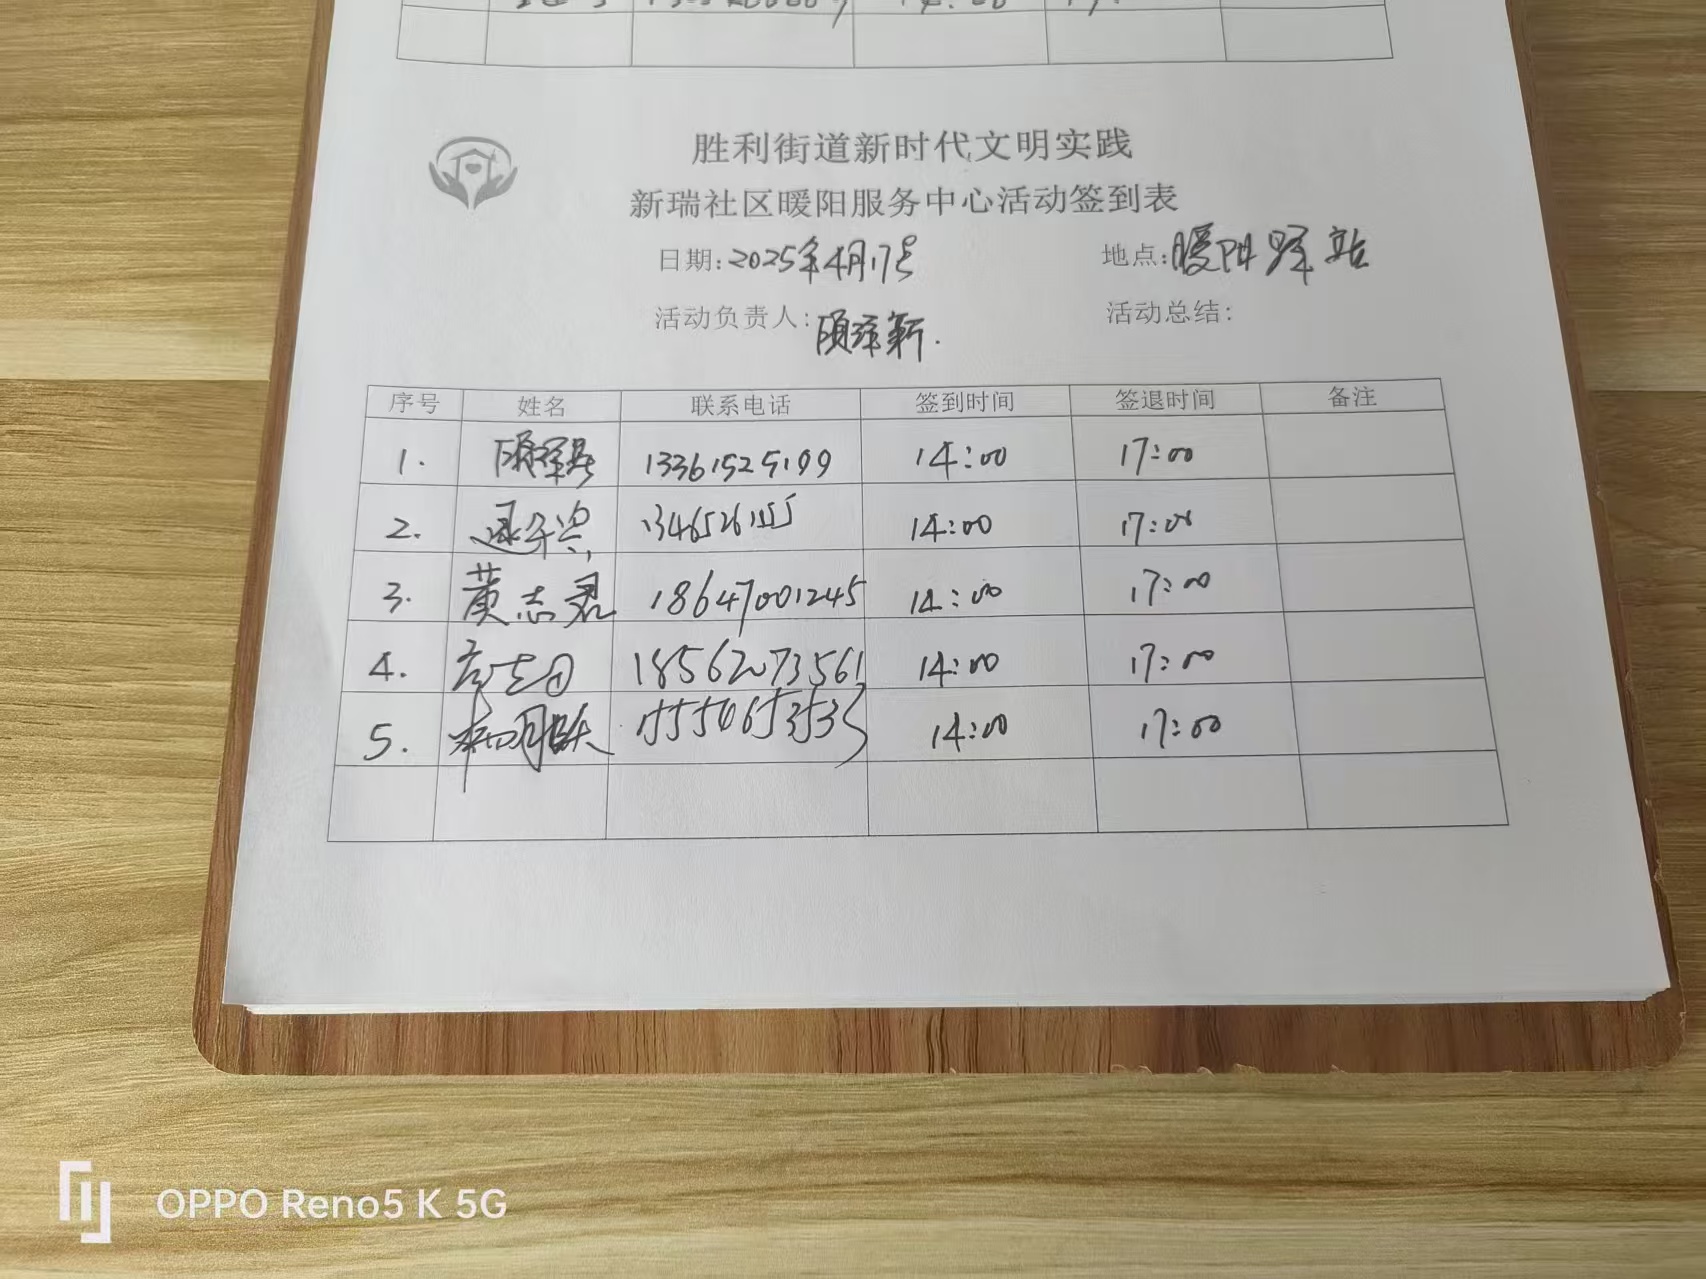 胜利街道新时代文明实践
新瑞社区暖阳服务中心活动签到表
日期:2025年4月17号 地点:暖阳驿站
活动负责人: 活动总结:
序号 姓名 联系电话 签到时间 签退时间 备注
1. 13361525199 14:00 17:00
2. 14:00 17:00
3. 黄志君 18647001245 14:00 17:00
4. 18562073561 14:00 17:00
5. 14:00 17:00
OPPO Reno5 K 5G